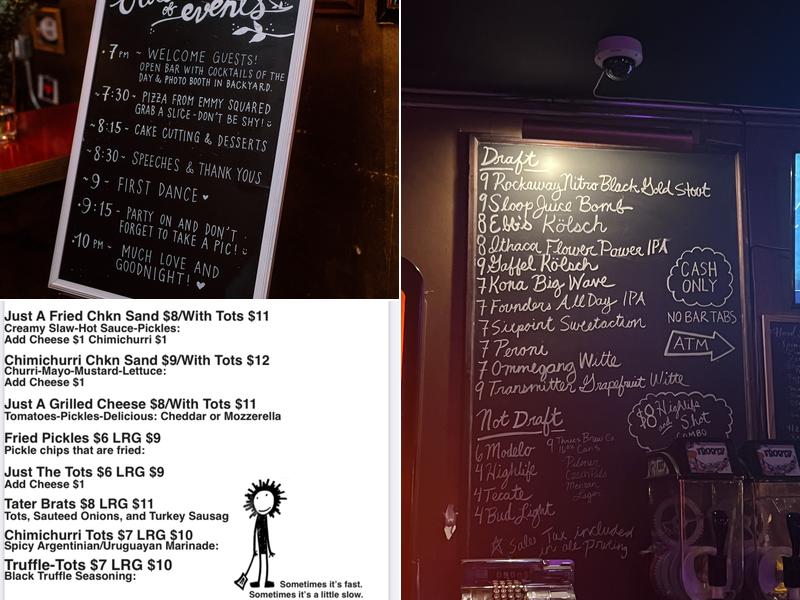 of events
·7PM ~ WELCOME GUESTS!
OPEN BAR WITH COCKTAILS OF THE
DAY & PHOTO BOOTH IN BACKYARD.
~7:30~ PIZZA FROM EMMY SQUARED
GRAB A SLICE - DON'T BE SHY!
~8:15~ CAKE CUTTING & DESSERTS
~8:30~ SPEECHES & THANK YOUS
~9~ FIRST DANCE ♥
·9:15~ PARTY ON AND DON'T
FORGET TO TAKE A PIC!
·10PM~ MUCH LOVE AND
GOODNIGHT! ♥
Just A Fried Chkn Sand $8/With Tots $11
Creamy Slaw-Hot Sauce-Pickles:
Add Cheese $1 Chimichurri $1
Chimichurri Chkn Sand $9/With Tots $12
Churri-Mayo-Mustard-Lettuce:
Add Cheese $1
Just A Grilled Cheese $8/With Tots $11
Tomatoes-Pickles-Delicious: Cheddar or Mozzerella
Fried Pickles $6 LRG $9
Pickle chips that are fried:
Just The Tots $6 LRG $9
Add Cheese $1
Tater Brats $8 LRG $11
Tots, Sauteed Onions, and Turkey Sausag
Chimichurri Tots $7 LRG $10
Spicy Argentinian/Uruguayan Marinade:
Truffle-Tots $7 LRG $10
Black Truffle Seasoning:
Sometimes it's fast.
Sometimes it's a little slow.
Draft
9 Rockaway Nitro Black Gold Stout
9 Sloop Juice Bomb
8 Ebbs Kölsch
8 Ithaca Flower Power IPA
9 Gaffel Kölsch
7 Kona Big Wave
7 Founders All Day IPA
7 Sixpoint Sweetaction
7 Peroni
7 Ommegang Witte
9 Transmitter Grapefruit Witte
CASH
ONLY
NO BAR TABS
ATM
Not Draft
6 Modelo
4 Highlife
4 Tecate
4 Bud Light
9 Threes Brew Co
16oz Cans
Pilsner
Czech Pils
Mexican
Lager
$8 Highlife
and Shot
COMBO
☆ Sales Tax included
in all Pricing
FROOTS
FROOTS